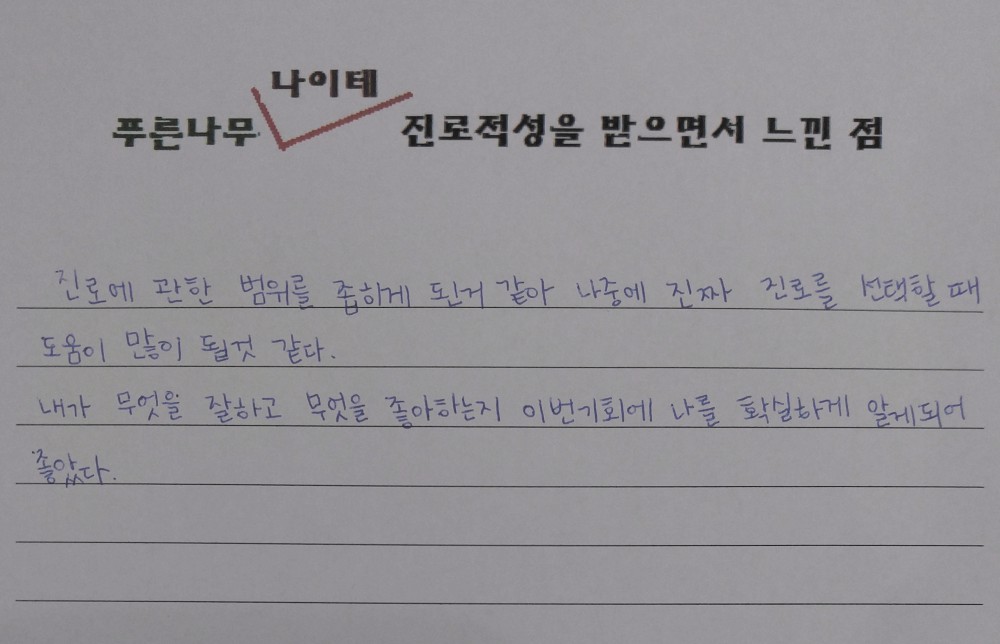 나이테
푸른나무 진로적성을 받으면서 느낀 점
진로에 관한 범위를 좁히게 된거 같아 나중에 진짜 진로를 선택할 때
도움이 많이 될것 같다.
내가 무엇을 잘하고 무엇을 좋아하는지 이번기회에 나를 확실하게 알게되어
좋았다.